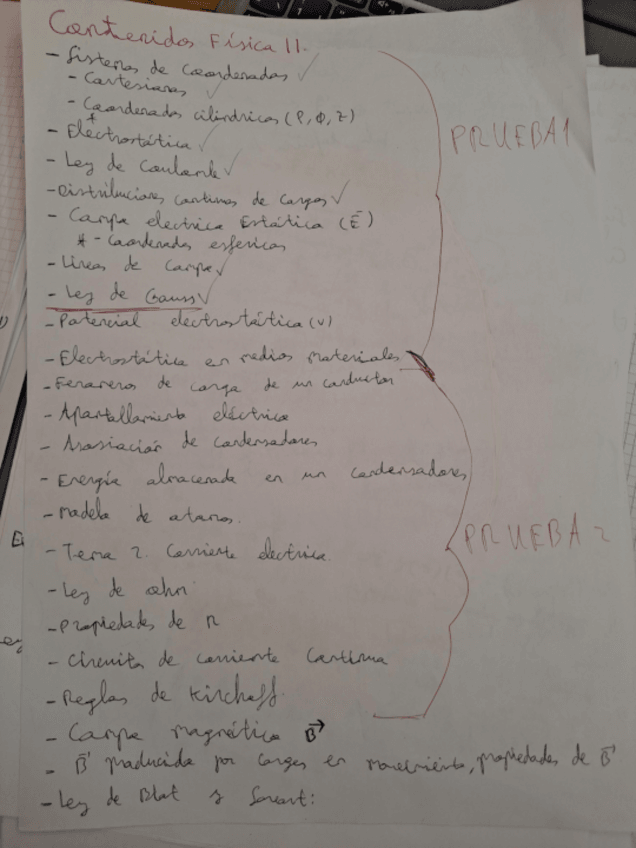 Contenidos Física II.
- Sistemas de Coordenadas ✓
- Cartesianas ✓
- Coordenadas cilíndricas (ρ, Φ, z)
- Electrostática ✓
- Ley de Coulomb ✓
- Distribuciones continuas de cargas ✓
- Campo electrico Estático (E⃗)
* - Coordenadas esfericas
- Lineas de Campo ✓
- Ley de Gauss ✓
- Potencial electrostática (v)
- Electrostática en medios materiales
- Fenomenos de carga de un conductor
- Apantallamiento eléctrico
- Asosiación de condensadores
- Energía almacenada en un condensadores
- Modelo de atomos.
- Tema 2. Corriente electrica.
- Ley de ohn
- Propiedades de R
- Circuitos de corriente Continua
- Reglas de Kirchoff.
- Campo magnético B⃗
- B⃗ producido por cargas en movimiento, propiedades de B⃗
- Ley de Biot y Savart:
PRUEBA 1
PRUEBA 2